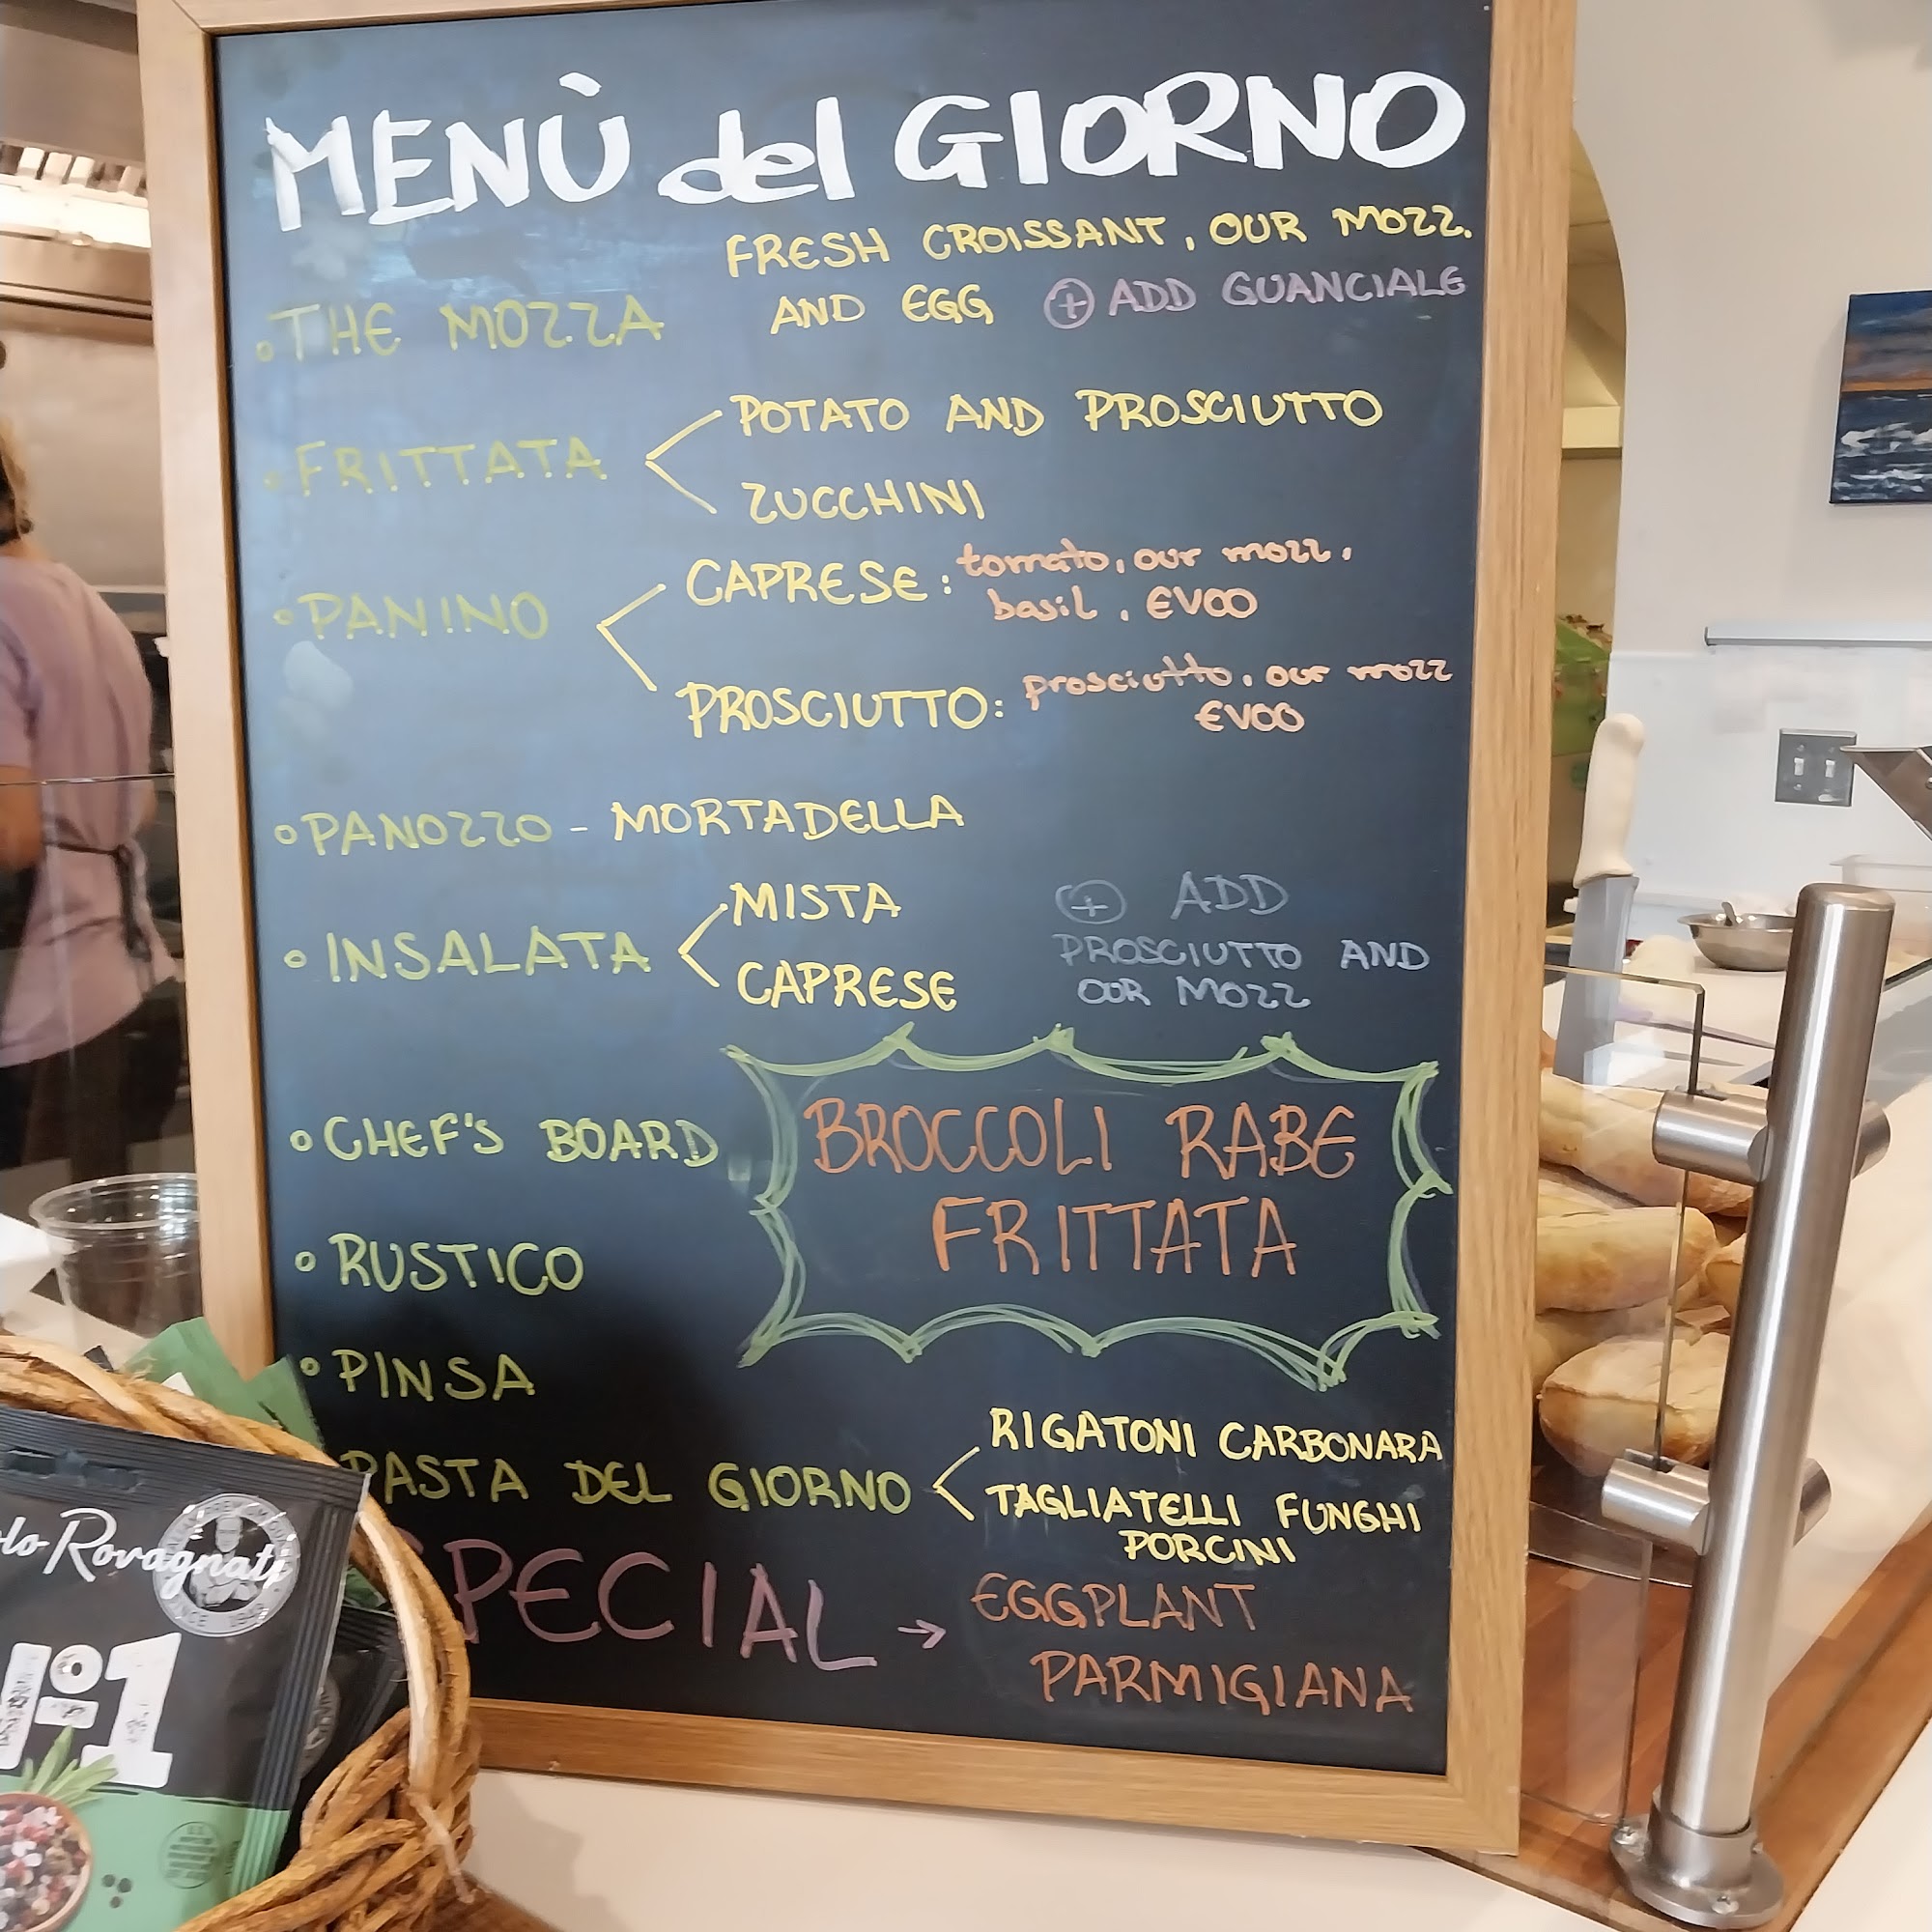 MENÙ del GIORNO
FRESH CROISSANT, OUR MOZZ.
• THE MOZZA AND EGG ⊕ ADD GUANCIALE
• FRITTATA
POTATO AND PROSCIUTTO
ZUCCHINI
• PANINO
CAPRESE: tomato, our mozz.
basil, EVOO
PROSCIUTTO: prosciutto, our mozz
EVOO
• PANOZZO - MORTADELLA
• INSALATA
MISTA
CAPRESE
⊕ ADD
PROSCIUTTO AND
OUR MOZZ
• CHEF'S BOARD
BROCCOLI RABE
FRITTATA
• RUSTICO
• PINSA
PASTA DEL GIORNO
RIGATONI CARBONARA
TAGLIATELLI FUNGHI
PORCINI
SPECIAL → EGGPLANT
PARMIGIANA
Rovagnati
N°1